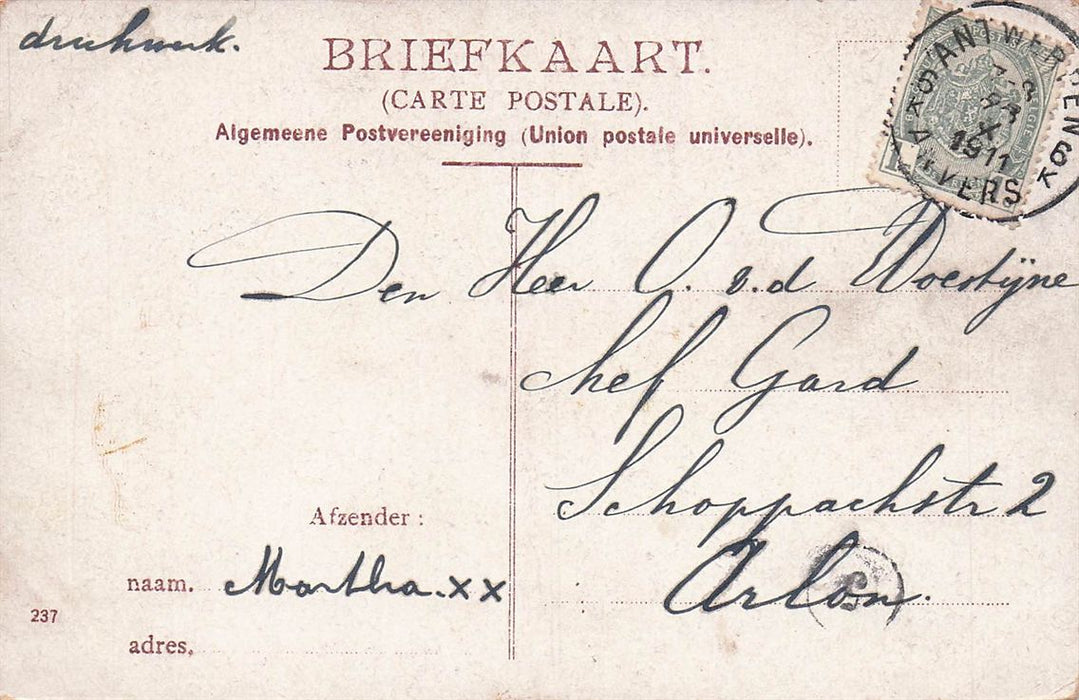 drukwerk.
BRIEFKAART.
(CARTE POSTALE).
Algemeene Postvereeniging (Union postale universelle).
ANTWERPEN 6K
1911
ANVERS
Den Heer O. v.d Woestijne
chef Gard
Schoppachstr 2
Arlon.
Afzender :
naam. Martha. xx
237
adres.